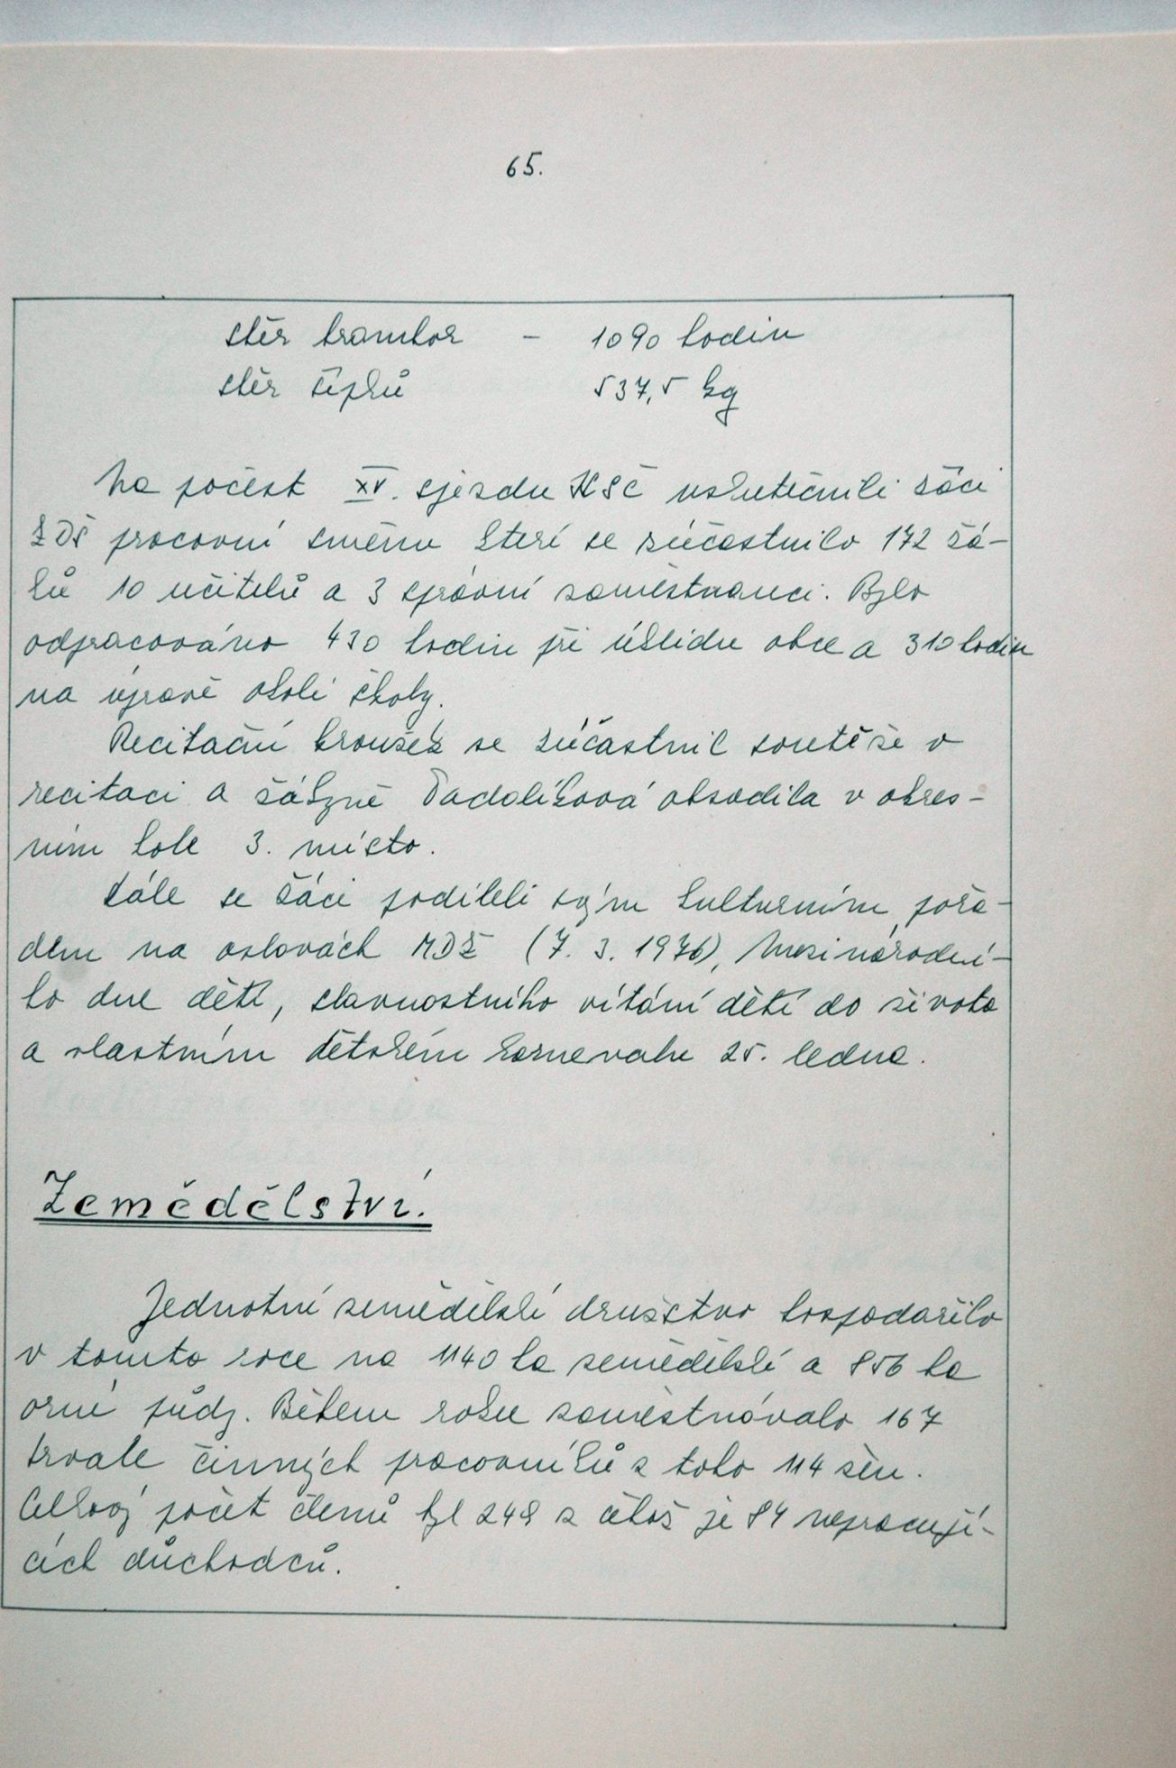 65.
sběr brambor - 1090 hodin
sběr šípků 537,5 kg
Na počest XV. sjezdu KSČ uskutečnili žáci
ZDŠ pracovní směnu které se zúčastnilo 172 žá-
ků 10 učitelů a 3 správní zaměstnanci. Bylo
odpracováno 430 hodin při úklidu obce a 310 hodin
na úpravě okolí školy.
Recitační kroužek se zúčastnil soutěže v
recitaci a žákyně Tadolíková obsadila v okres-
ním kole 3. místo.
Dále se žáci podíleli svým kulturním pořa-
dem na oslavách MDŽ (7. 3. 1976), Mezinárodní-
ho dne dětí, slavnostního vítání dětí do života
a vlastním dětském karnevalu 25. ledna.
Zemědělství.
Jednotné zemědělské družstvo hospodařilo
v tomto roce na 1140 ha zemědělské a 856 ha
orné půdy. Během roku zaměstnávalo 167
trvale činných pracovníků z toho 114 žen.
Celkový počet členů byl 248 z čehož je 84 nepracují-
cích důchodců.